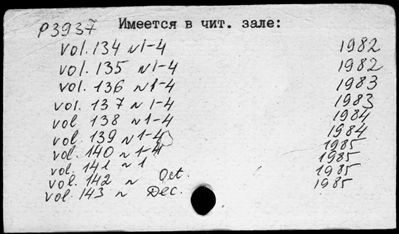 P3937 Имеется в чит. зале:
vol. 134 N 1-4 1982
vol. 135 N 1-4 1982
vol. 136 N 1-4 1983
vol. 137 N 1-4 1983
vol. 138 N 1-4 1984
vol. 139 N 1-4 1984
vol. 140 N 1-4 1985
vol. 141 N 1 1985
vol. 142 N Oct. 1985
vol. 143 N Dec. 1985